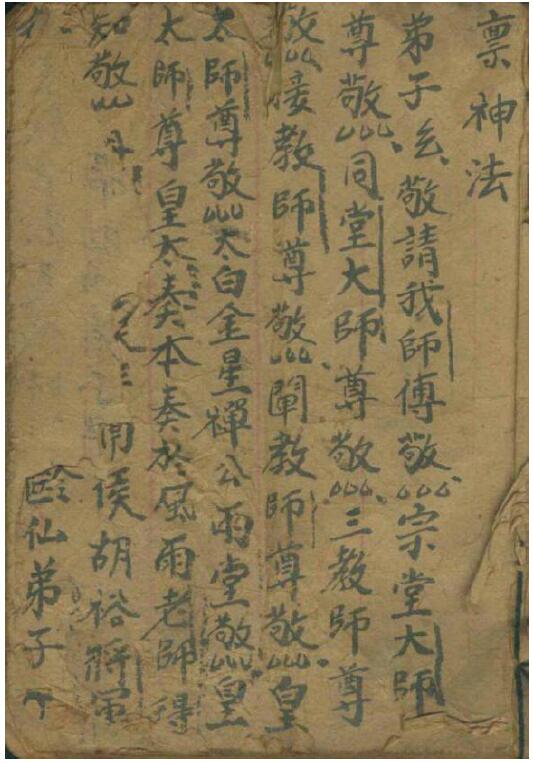 禀神法
弟子幺敬請我師傅敬宗堂大師
尊敬同堂大師尊敬三教師尊
敬接教師尊敬闡教師尊敬皇
太師尊敬太白金星禪公雨堂敬皇
太師尊皇太奏本奏於風雨老師得
知敬 用侯胡裕將軍
仙弟子